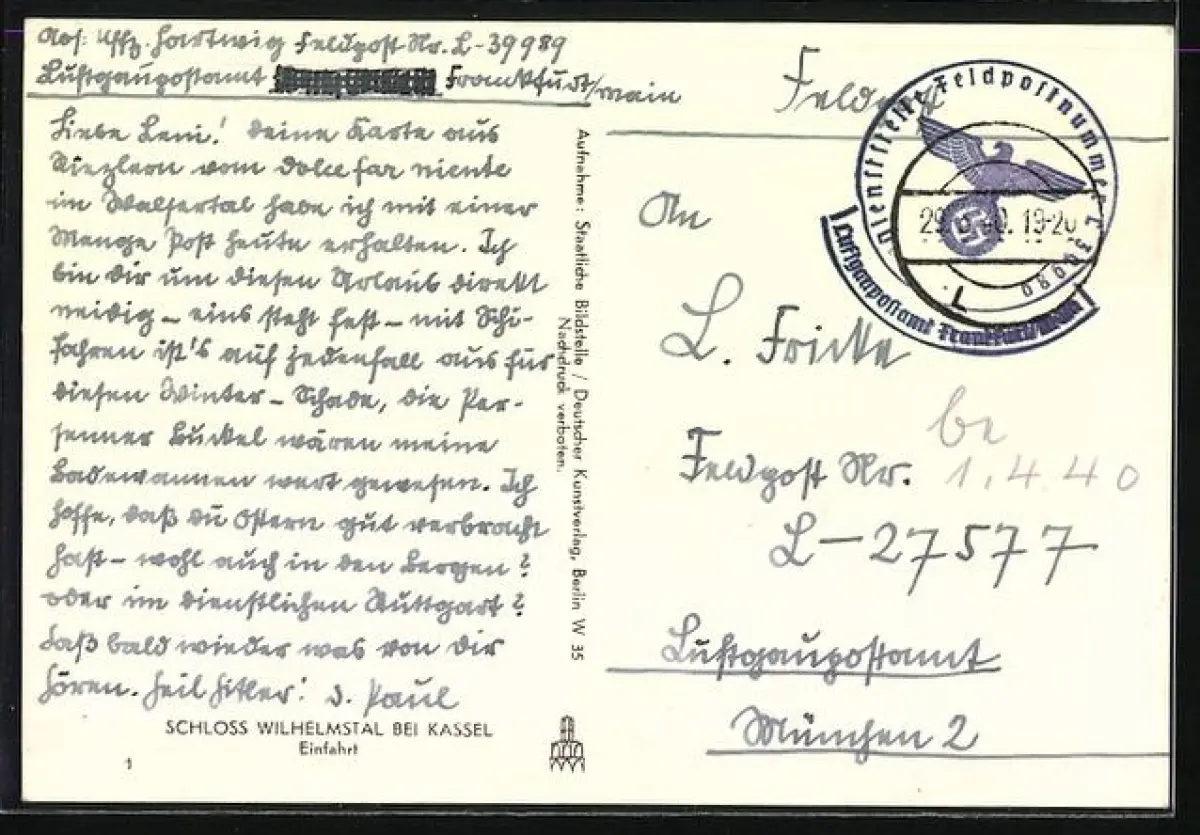 Abs: Uffz. Hartwig Feldpost-Nr. L-39989
Luftgaupostamt Frankfurt/Main
Liebe Leni! Deine Karte aus
Riezlern vom dolce far niente
im Walsertal habe ich mit einer
Menge Post heute erhalten. Ich
bin dir um diesen Urlaub direkt
neidig – eins steht fest – mit Schi-
fahren ist's auf jedenfall aus für
diesen Winter – Schade, die
Buckel wären meine
Badewannen wert gewesen. Ich
hoffe, daß du Ostern gut verbracht
hast – wohl auch in den Bergen?
oder im dienstlichen Stuttgart?
Laß bald wieder was von dir
hören. Heil Hitler! D. Paul
SCHLOSS WILHELMSTAL BEI KASSEL
Einfahrt
1
Aufnehme: Staatliche Bildstelle / Deutscher Kunstverlag, Berlin W 35
Nachdruck verboten.
Feldpost
Dienststelle Feldpostnummer L 39989
Luftgaupostamt Frankfurt/Main
An
L. Fricke
be
1.4.40
Feldpost Nr.
L-27577
Luftgaupostamt
München 2